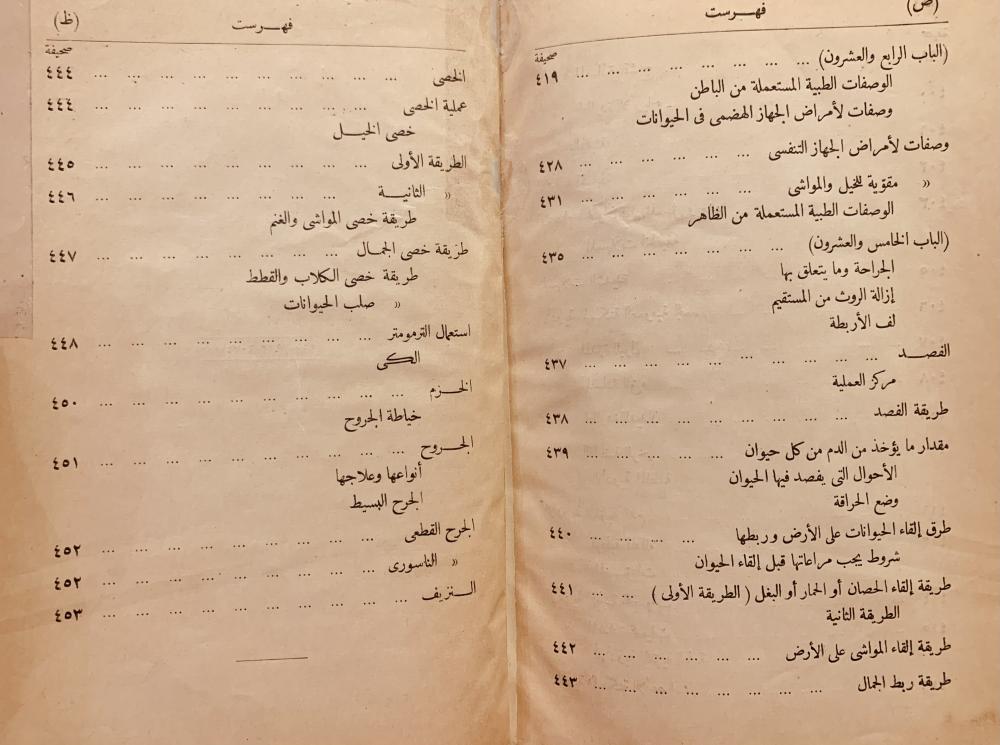 (ض)
فهرست
صحيفة
(الباب الرابع والعشرون) ... ... ... ... ... ... ... ٤١٩
الوصفات الطبية المستعملة من الباطن
وصفات لأمراض الجهاز الهضمى فى الحيوانات
وصفات لأمراض الجهاز التنفسى ... ... ... ... ... ... ٤٢٨
» مقوّية للخيل والمواشى ... ... ... ... ... ... ٤٣١
الوصفات الطبية المستعملة من الظاهر
(الباب الخامس والعشرون) ... ... ... ... ... ... ... ٤٣٥
الجراحة وما يتعلق بها
إزالة الروث من المستقيم
لف الأربطة
الفصـــد ... ... ... ... ... ... ... ... ... ... ٤٣٧
مركز العملية
طريقة الفصد ... ... ... ... ... ... ... ... ... ٤٣٨
مقدار ما يؤخذ من الدم من كل حيوان ... ... ... ... ... ٤٣٩
الأحوال التى يفصد فيها الحيوان
وضع الحراقة
طرق إلقاء الحيوانات على الأرض وربطها ... ... ... ... ٤٤٠
شروط يجب مراعاتها قبل إلقاء الحيوان
طريقة إلقاء الحصان أو الحمار أو البغل ( الطريقة الأولى ) ... ... ٤٤١
الطريقة الثانية
طريقة إلقاء المواشى على الأرض ... ... ... ... ... ... ٤٤٢
طريقة ربط الجمال ... ... ... ... ... ... ... ... ٤٤٣
(ظ)
فهرست
صحيفة
الخصى ... ... ... ... ... ... ... ... ... ... ... ٤٤٤
عملية الخصى ... ... ... ... ... ... ... ... ... ٤٤٤
خصى الخيــل
الطريقة الأولى ... ... ... ... ... ... ... ... ... ٤٤٥
» الثانيــة ... ... ... ... ... ... ... ... ٤٤٦
طريقة خصى المواشى والغنم
طريقة خصى الجمــال ... ... ... ... ... ... ... ... ... ٤٤٧
طريقة خصى الكلاب والقطط
» صلب الحيوانات
استعمال الترمومتر ... ... ... ... ... ... ... ... ... ٤٤٨
الكى
الخـزم ... ... ... ... ... ... ... ... ... ... ٤٥٠
خياطة الجروح
الجــروح ... ... ... ... ... ... ... ... ... ... ٤٥١
أنواعها وعلاجها
الجرح البسيط
الجرح القطعى ... ... ... ... ... ... ... ... ... ٤٥٢
» الناسورى ... ... ... ... ... ... ... ... ... ٤٥٢
الــنزيف ... ... ... ... ... ... ... ... ... ... ٤٥٣